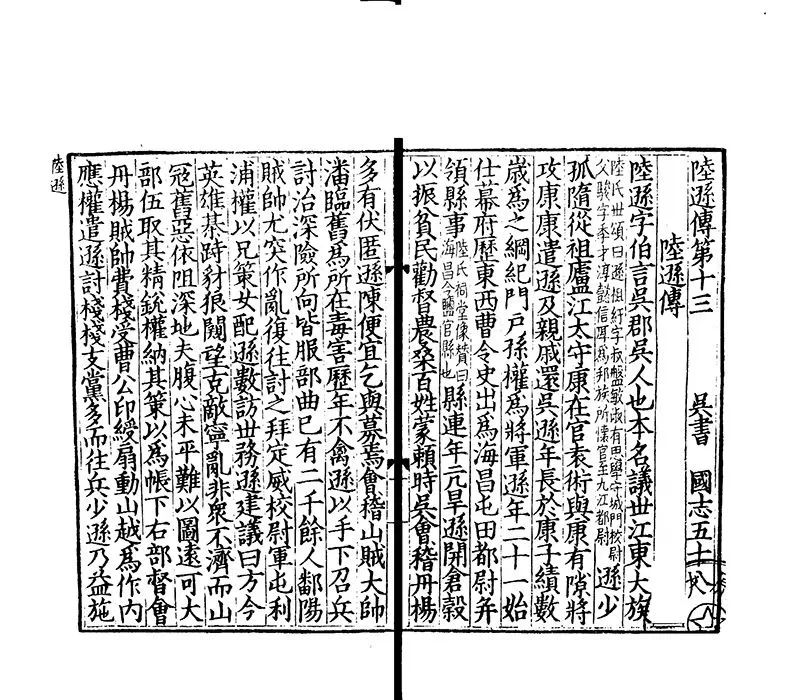 陸遜傳第十三 吳書 國志五十八
陸遜傳
陸遜字伯言吳郡吳人也本名議世江東大族
陸氏世頌曰遜祖紆字叔盤敏淑有思學守城門校尉
父駿字季才淳懿信厚爲邦族所懷官至九江都尉
遜少
孤隨從祖廬江太守康在官袁術與康有隙將
攻康康遣遜及親戚還吳遜年長於康子績數
歲爲之綱紀門戶孫權爲將軍遜年二十一始
仕幕府歷東西曹令史出爲海昌屯田都尉并
領縣事
陸氏祠堂像贊曰
海昌今鹽官縣也
縣連年亢旱遜開倉穀
以振貧民勸督農桑百姓蒙賴時吳會稽丹楊
多有伏匿遜陳便宜乞與募焉會稽山賊大帥
潘臨舊爲所在毒害歷年不禽遜以手下召兵
討治深險所向皆服部曲已有二千餘人鄱陽
賊帥尤突作亂復往討之拜定威校尉軍屯利
浦權以兄策女配遜數訪世務遜建議曰方今
英雄棊跱豺狼闚望克敵寧亂非衆不濟而山
寇舊惡依阻深地夫腹心未平難以圖遠可大
部伍取其精銳權納其策以爲帳下右部督會
丹楊賊帥費棧受曹公印綬扇動山越爲作內
應權遣遜討棧棧支黨多而往兵少遜乃益施
陸遜